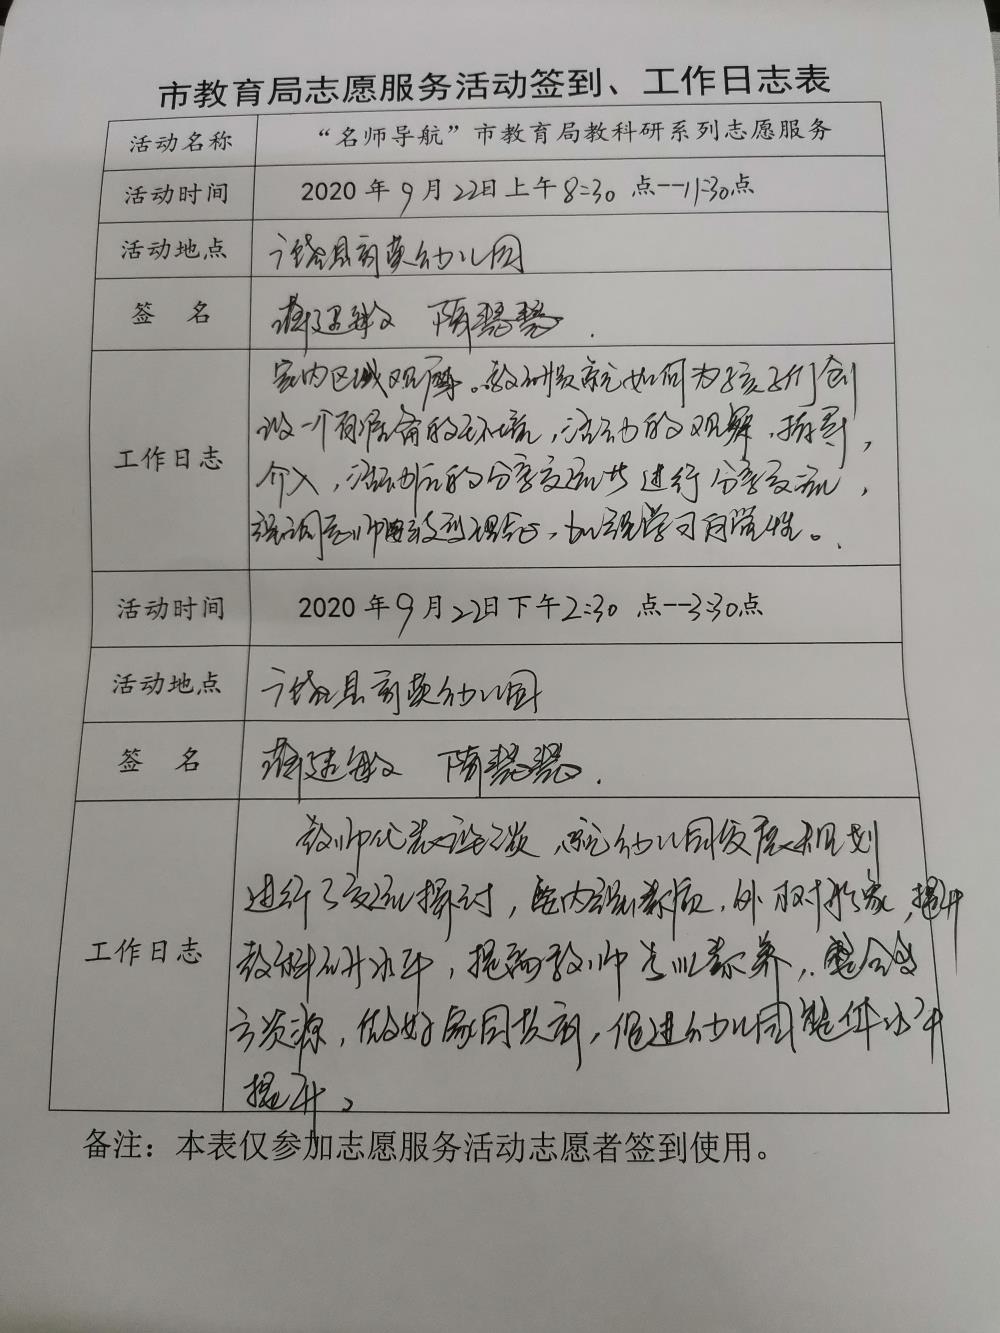 市教育局志愿服务活动签到、工作日志表
活动名称 “名师导航”市教育局教科研系列志愿服务
活动时间 2020 年 9 月 22日上午 8:30 点--11:30点
活动地点 县 幼儿园
签 名
工作日志 室内区域观摩。教研员就如何为孩子们创
设一个有准备的环境，活动的观察、指导，
介入，活动后的分享交流等进行分享交流，
强调 ，加强学习自觉性。
活动时间 2020 年 9 月 22日下午2:30 点--3:30点
活动地点 县 幼儿园
签 名
工作日志 教师代表座谈，就幼儿园发展规划
进行了交流探讨，要内强素质，外树形象，提升
教科研水平，提高教师专业素养，整合各
方资源，做好家园共育，促进幼儿园整体水平
提升。
备注：本表仅参加志愿服务活动志愿者签到使用。